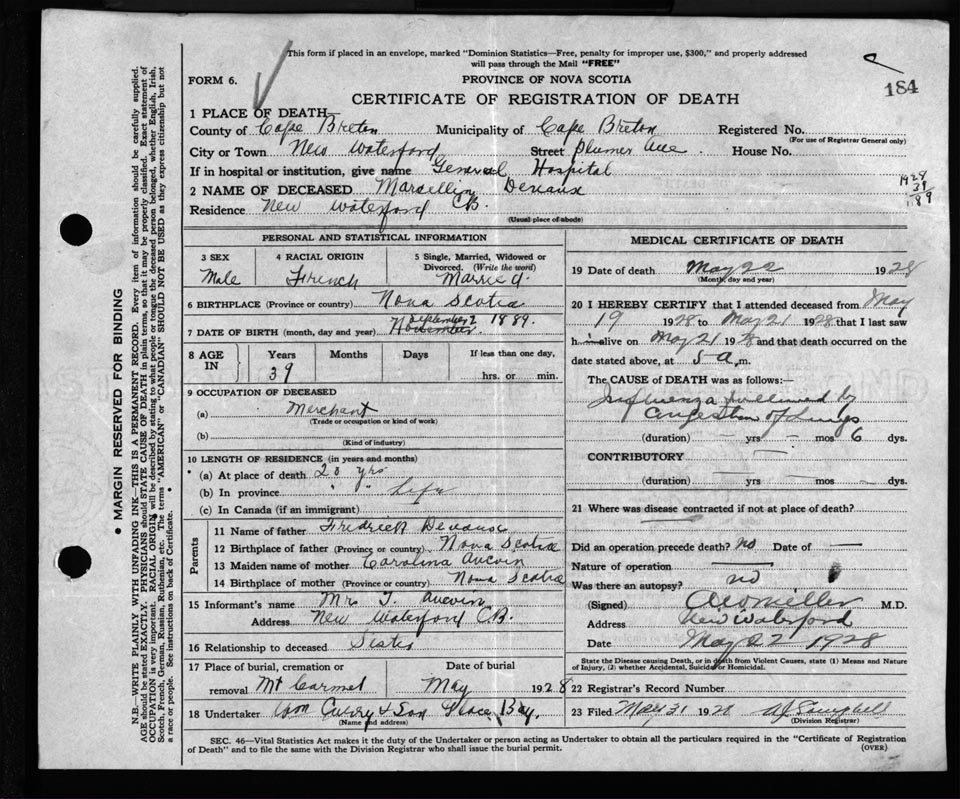 This form if placed in an envelope, marked "Dominion Statistics—Free, penalty for improper use, $300," and properly addressed
will pass through the Mail "FREE"
FORM 6.
PROVINCE OF NOVA SCOTIA
184
CERTIFICATE OF REGISTRATION OF DEATH
1 PLACE OF DEATH
County of Cape Breton Municipality of Cape Breton Registered No.
(For use of Registrar General only)
City or Town New Waterford Street Plumer Ave House No.
If in hospital or institution, give name General Hospital
2 NAME OF DECEASED Marcellin Deveaux
1928
39
1889
Residence New Waterford CB.
(Usual place of abode)
PERSONAL AND STATISTICAL INFORMATION
3 SEX 4 RACIAL ORIGIN 5 Single, Married, Widowed or Divorced. (Write the word)
Male French Married.
6 BIRTHPLACE (Province or country) Nova Scotia
7 DATE OF BIRTH (month, day and year) September 2 1889.
8 AGE IN Years Months Days If less than one day,
39 hrs. or min.
9 OCCUPATION OF DECEASED
(a) Merchant
(Trade or occupation or kind of work)
(b)
(Kind of industry)
10 LENGTH OF RESIDENCE (in years and months)
(a) At place of death 20 yrs
(b) In province " " Life
(c) In Canada (if an immigrant)
Parents
11 Name of father Fredrick Deveaux
12 Birthplace of father (Province or country) Nova Scotia
13 Maiden name of mother Carolina Aucoin
14 Birthplace of mother (Province or country) Nova Scotia
15 Informant's name Mrs T. Aucoin
Address New Waterford CB.
16 Relationship to deceased Sister
17 Place of burial, cremation or removal Mt Carmel Date of burial May 1928
18 Undertaker Wm Curry & Son Glace Bay.
(Name and address)
MEDICAL CERTIFICATE OF DEATH
19 Date of death May 22 1928
(Month, day and year)
20 I HEREBY CERTIFY that I attended deceased from May
19 1928 to May 21 1928 that I last saw
h im alive on May 21 1928 and that death occurred on the
date stated above, at 5 a, m.
The CAUSE of DEATH was as follows:—
Influenza followed by
Congestion of Lungs
(duration) — yrs — mos 6 dys.
CONTRIBUTORY —
(duration) — yrs. — mos. dys.
21 Where was disease contracted if not at place of death?
Did an operation precede death? no Date of —
Nature of operation —
Was there an autopsy? no
(Signed) Miller M.D.
Address New Waterford
Date May 22 1928
State the Disease causing Death, or in death from Violent Causes, state (1) Means and Nature
of Injury, (2) whether Accidental, Suicidal or Homicidal.
22 Registrar's Record Number
23 Filed May 31 1928 Campbell
(Division Registrar)
SEC. 46—Vital Statistics Act makes it the duty of the Undertaker or person acting as Undertaker to obtain all the particulars required in the "Certificate of Registration
of Death" and to file the same with the Division Registrar who shall issue the burial permit.
(OVER)
• MARGIN RESERVED FOR BINDING •
N.B.—WRITE PLAINLY WITH UNFADING INK—THIS IS A PERMANENT RECORD. Every item of information should be carefully supplied.
AGE should be stated EXACTLY. PHYSICIANS should STATE CAUSE OF DEATH in plain terms, so that it may be properly classified. Exact statement of
OCCUPATION is very important. RACIAL ORIGIN will be described by stating to what people or tongue the deceased person belonged, whether English, Irish,
Scotch, French, German, Russian, Ruthenian, etc. The terms "AMERICAN" or "CANADIAN" SHOULD NOT BE USED as they express citizenship but not
a race or people. See instructions on back of Certificate.